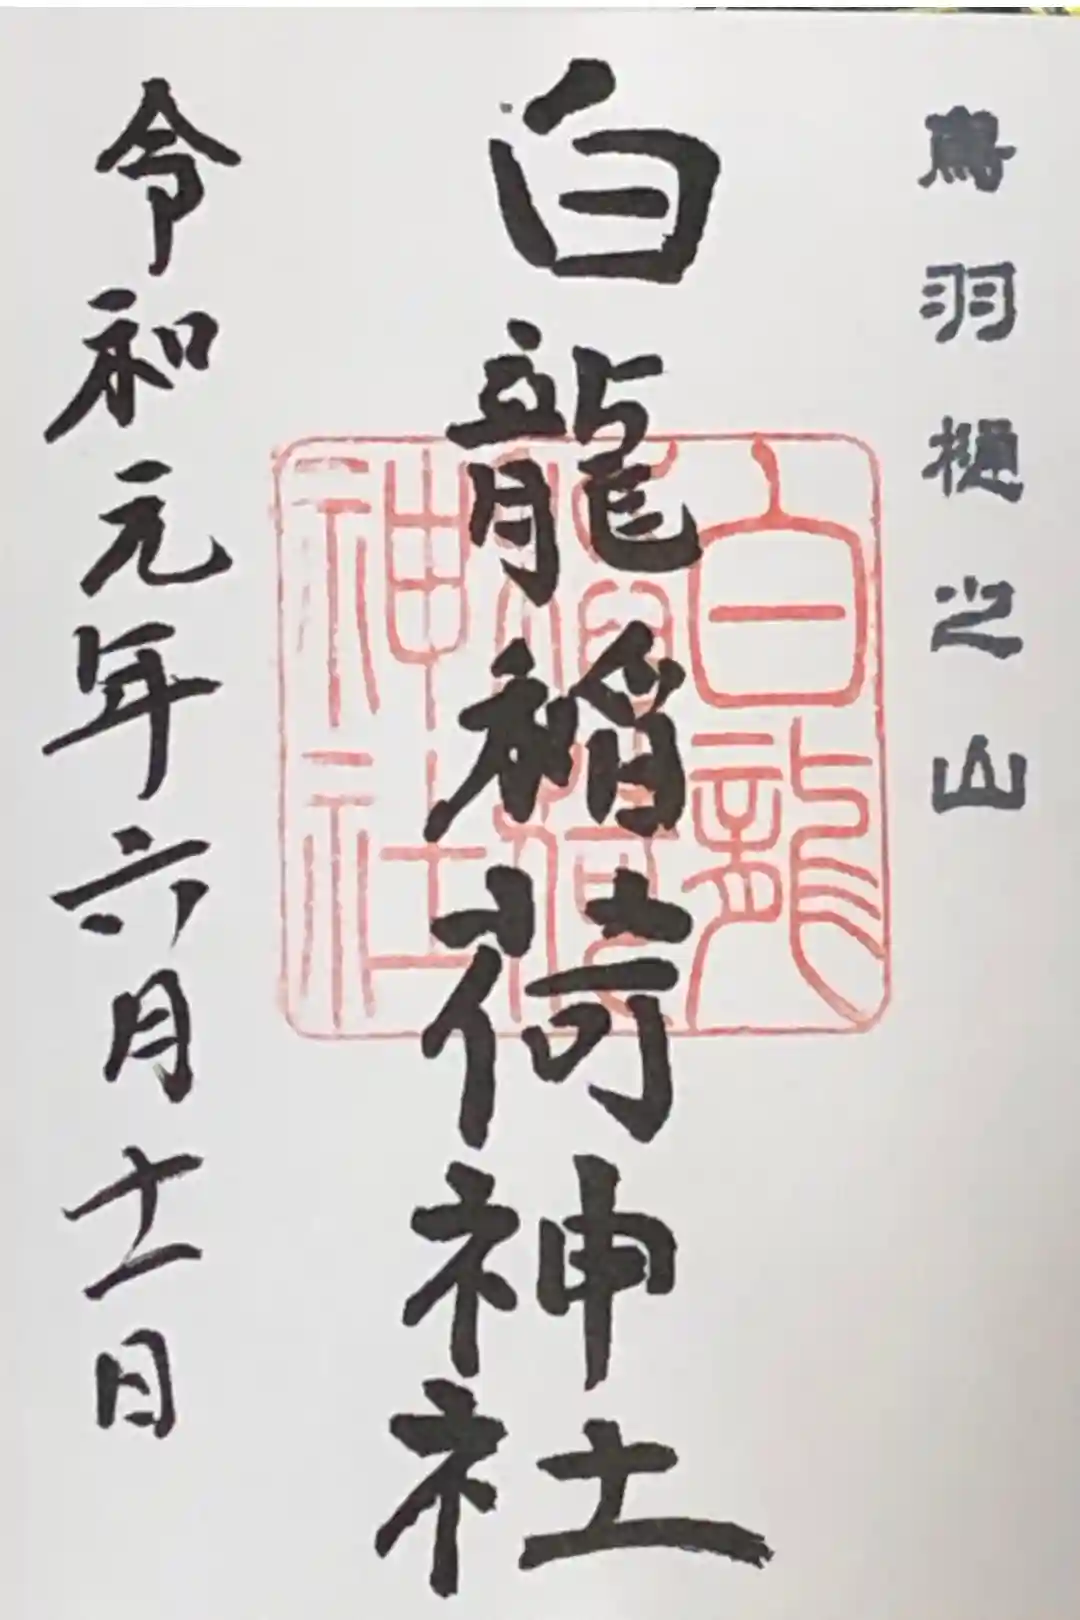 鳥羽樋之山
白龍稲荷神社
令和元年六月十一日
白龍
稲荷
神社